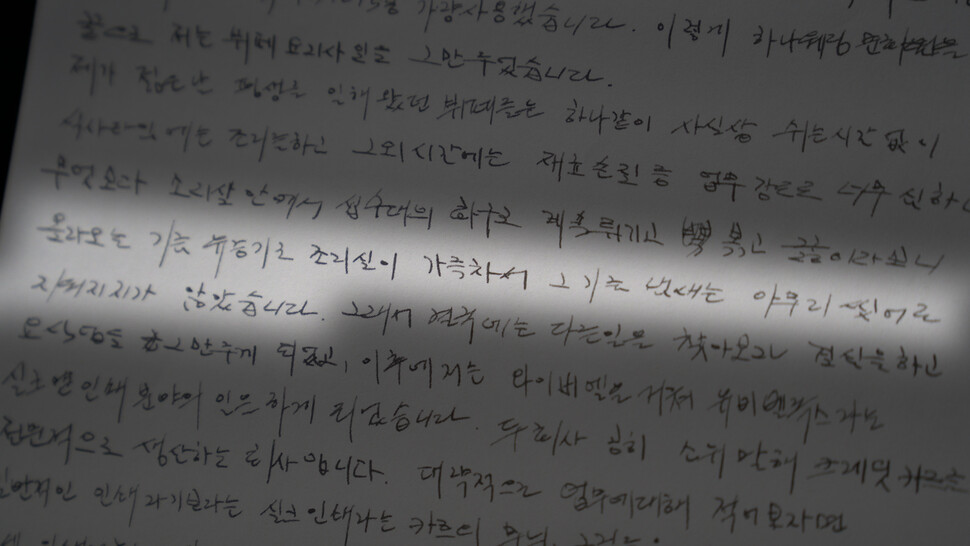 가량사용했습니다. 이렇게 하나
저는 뷔페 요리사 일을 그만두었습니다.
제가 젊은 날 평생을 일해 왔던 뷔페들은 하나같이 사실상 쉬는시간 없이
식사타임에는 조리를하고 그외시간에는 재료손질 등 업무강도로 너무 심하
무엇보다 조리실 안에서 화구로 계속튀기고 볶고 끓이다보니
올라오는 기름 유증기로 조리실이 가득차서 그 기름 냄새는 아무리 씻어도
지워지지가 않았습니다. 그래서 결국에는 다른일을 찾아보고 결심을하고
그만두게 되었고, 이후에 저는 와이비엘을 거쳐 라는
실크면인쇄 분야의 일을 하게 되었습니다. 두회사 공히 소위 말해 크레딧카드를
전면적으로 생산하는 회사입니다. 대략적으로 업무에대해 적어보자면
일반적인 인쇄 실크인쇄라는